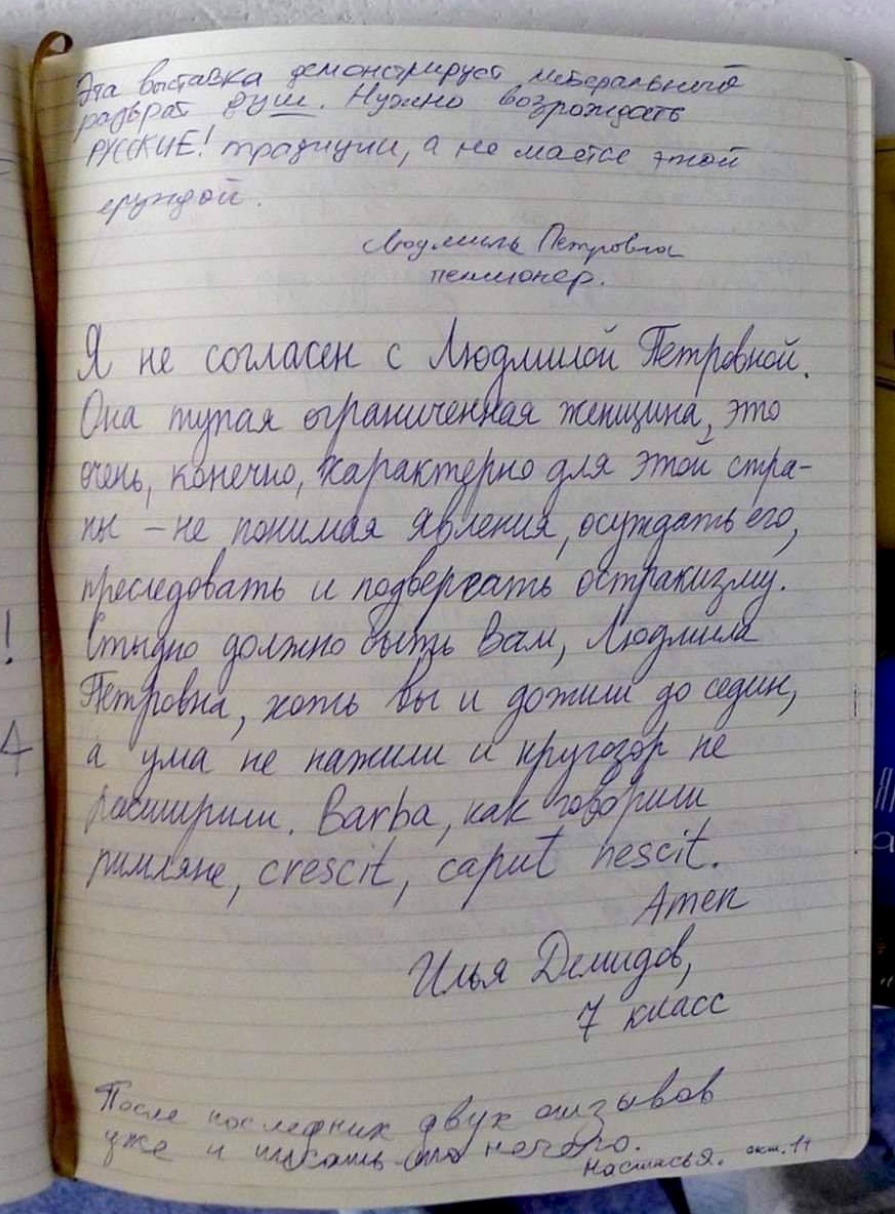 Эта выставка демонстрирует либеральный
разврат душ. Нужно возрождать
РУССКИЕ! традиции, а не маятся этой
ерундой.
Людмила Петровна
пенсионер.
Я не согласен с Людмилой Петровной.
Она тупая ограниченная женщина, это
очень, конечно, характерно для этой стра-
ны – не понимая явления, осуждать его,
преследовать и подвергать остракизму.
Стыдно должно быть Вам, Людмила
Петровна, хоть вы и дожили до седин,
а ума не нажили и кругозор не
расширили. Barba, как говорили
римляне, crescit, caput nescit.
Атеп
Илья Демидов,
7 класс
После последних двух отзывов
уже и писать нечего.
Настасья. окт. 14
!
4